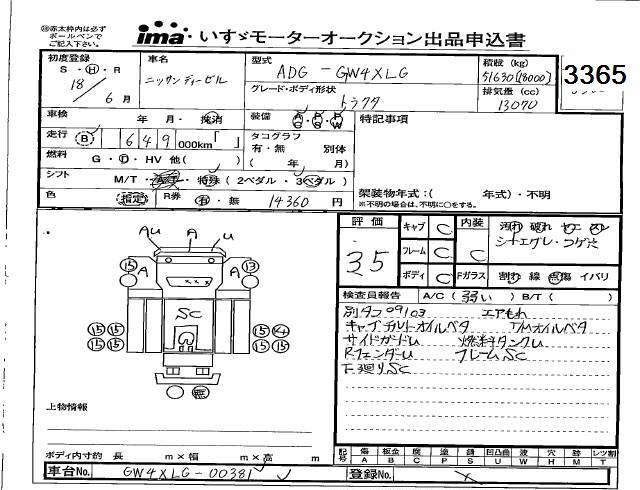 ※赤太枠内は必ず
ボールペンで
ご記入下さい。
ima いすゞモーターオークション出品申込書
初度登録
S・H・R
18 / 6月
車名
ニッサンディーゼル
型式
ADG - GW4XLG
グレード・ボディ形状
トラクタ
積載(kg)
51630[18000]
排気量(cc)
13070
3365
車検 年・月・抹消
装備 A/G P/S P/W
特記事項
走行 B 649000km「 」
タコグラフ
有・無 別体
( 年 月)
燃料 G・D・HV 他( )
シフト M/T・A/T・特殊(2ペダル・3ペダル)
色 指定 R券 有・無 14360円
架装物年式:( 年式)・不明
※不明の場合は、不明に○をする。
評価
3.5
キャブ C
フレーム C
ボディ C
内装 C
Fガラス
汚れ 破れ ヤニ スレ
シートエグレ・コゲ穴
割れ 線 点傷 イバリ
検査員報告 A/C(弱い) B/T( )
別タコ09103 エアもれ
キャブチルトオイルベタ T/Mオイルベタ
サイドガードU 燃料タンクU
RフェンダーU フレームSC
下廻りSC
AU A U
15 A A 13
SC
15 15 15 14
15 15 15 15
無
上物情報
ボディ内寸約 長 m×幅 m×高 m
記号 傷A 板金B 腐C 塗P 錆S 凹凸曲U 波W 穴H 跡M レツ割T
車台No. GW4XLG-00381
登録No.